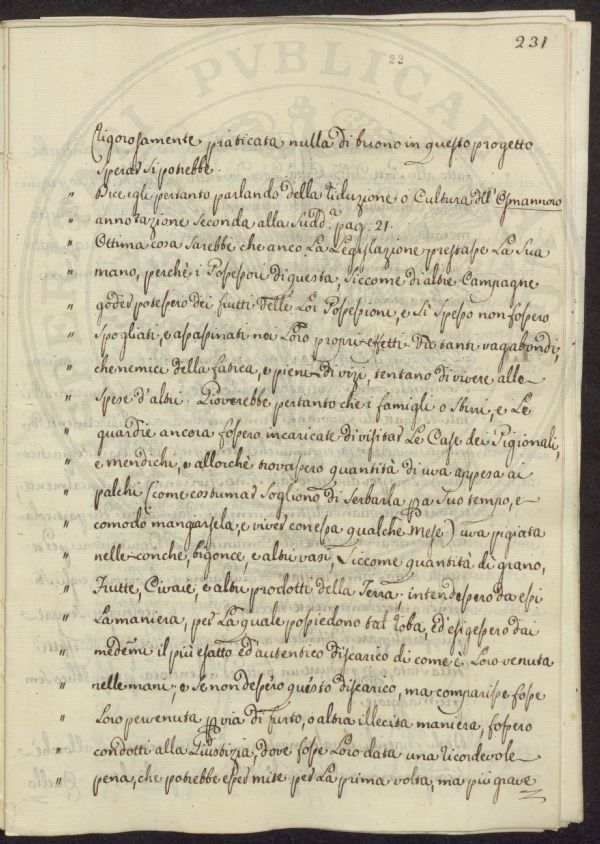 231
23
rigorosamente praticata nulla di buono in questo progetto
sperar si potrebbe.
" Dice egli pertanto parlando della riduzione o Cultura dell' Osmannoro
" annotazione seconda alla Sudd.a pag: 21.
" Ottima cosa sarebbe che anco La Legislazione prestasse La Sua
" mano, perchè i Possessori di questa, siccome di altre Campagne
" goder potessero dei frutti delle Lor Possessioni, e Si Spesso non fossero
" Spogliati, e assassinati nei Loro proprii effetti da tanti vagabondi,
" che nemici della fatica, e pieni di vizi, tentano di vivere alle
" spese d'altri. Gioverebbe pertanto che i famigli o Sbirri, e Le
" guardie ancora fossero incaricate di visitar Le Case dei Pigionali,
" e mendichi, e allorchè trovassero quantità di uva appesa ai
" palchi (come costumar Sogliono di Serbarla p a Suo tempo, e
" comodo mangiarsela, e viver con essa qualche Mese) uva pigiata
" nelle conche, bigonce, e altri vasi, Siccome quantità di grano,
" Frutte, Civaie, e altri prodotti della Terra; intendessero da essi
" La maniera, per La quale possiedono tal roba, ed esigessero dai
" medemi il più esatto ed autentico discarico di come è Loro venuta
" nelle mani; e Se non dessero questo discarico, ma comparisse fosse
" Loro pervenuta p via di furto, o altra illecita maniera, fossero
" condotti alla Giustizia, dove fosse Loro data una ricordevole
" pena, che potrebbe esser mite per La prima volta, ma più grave